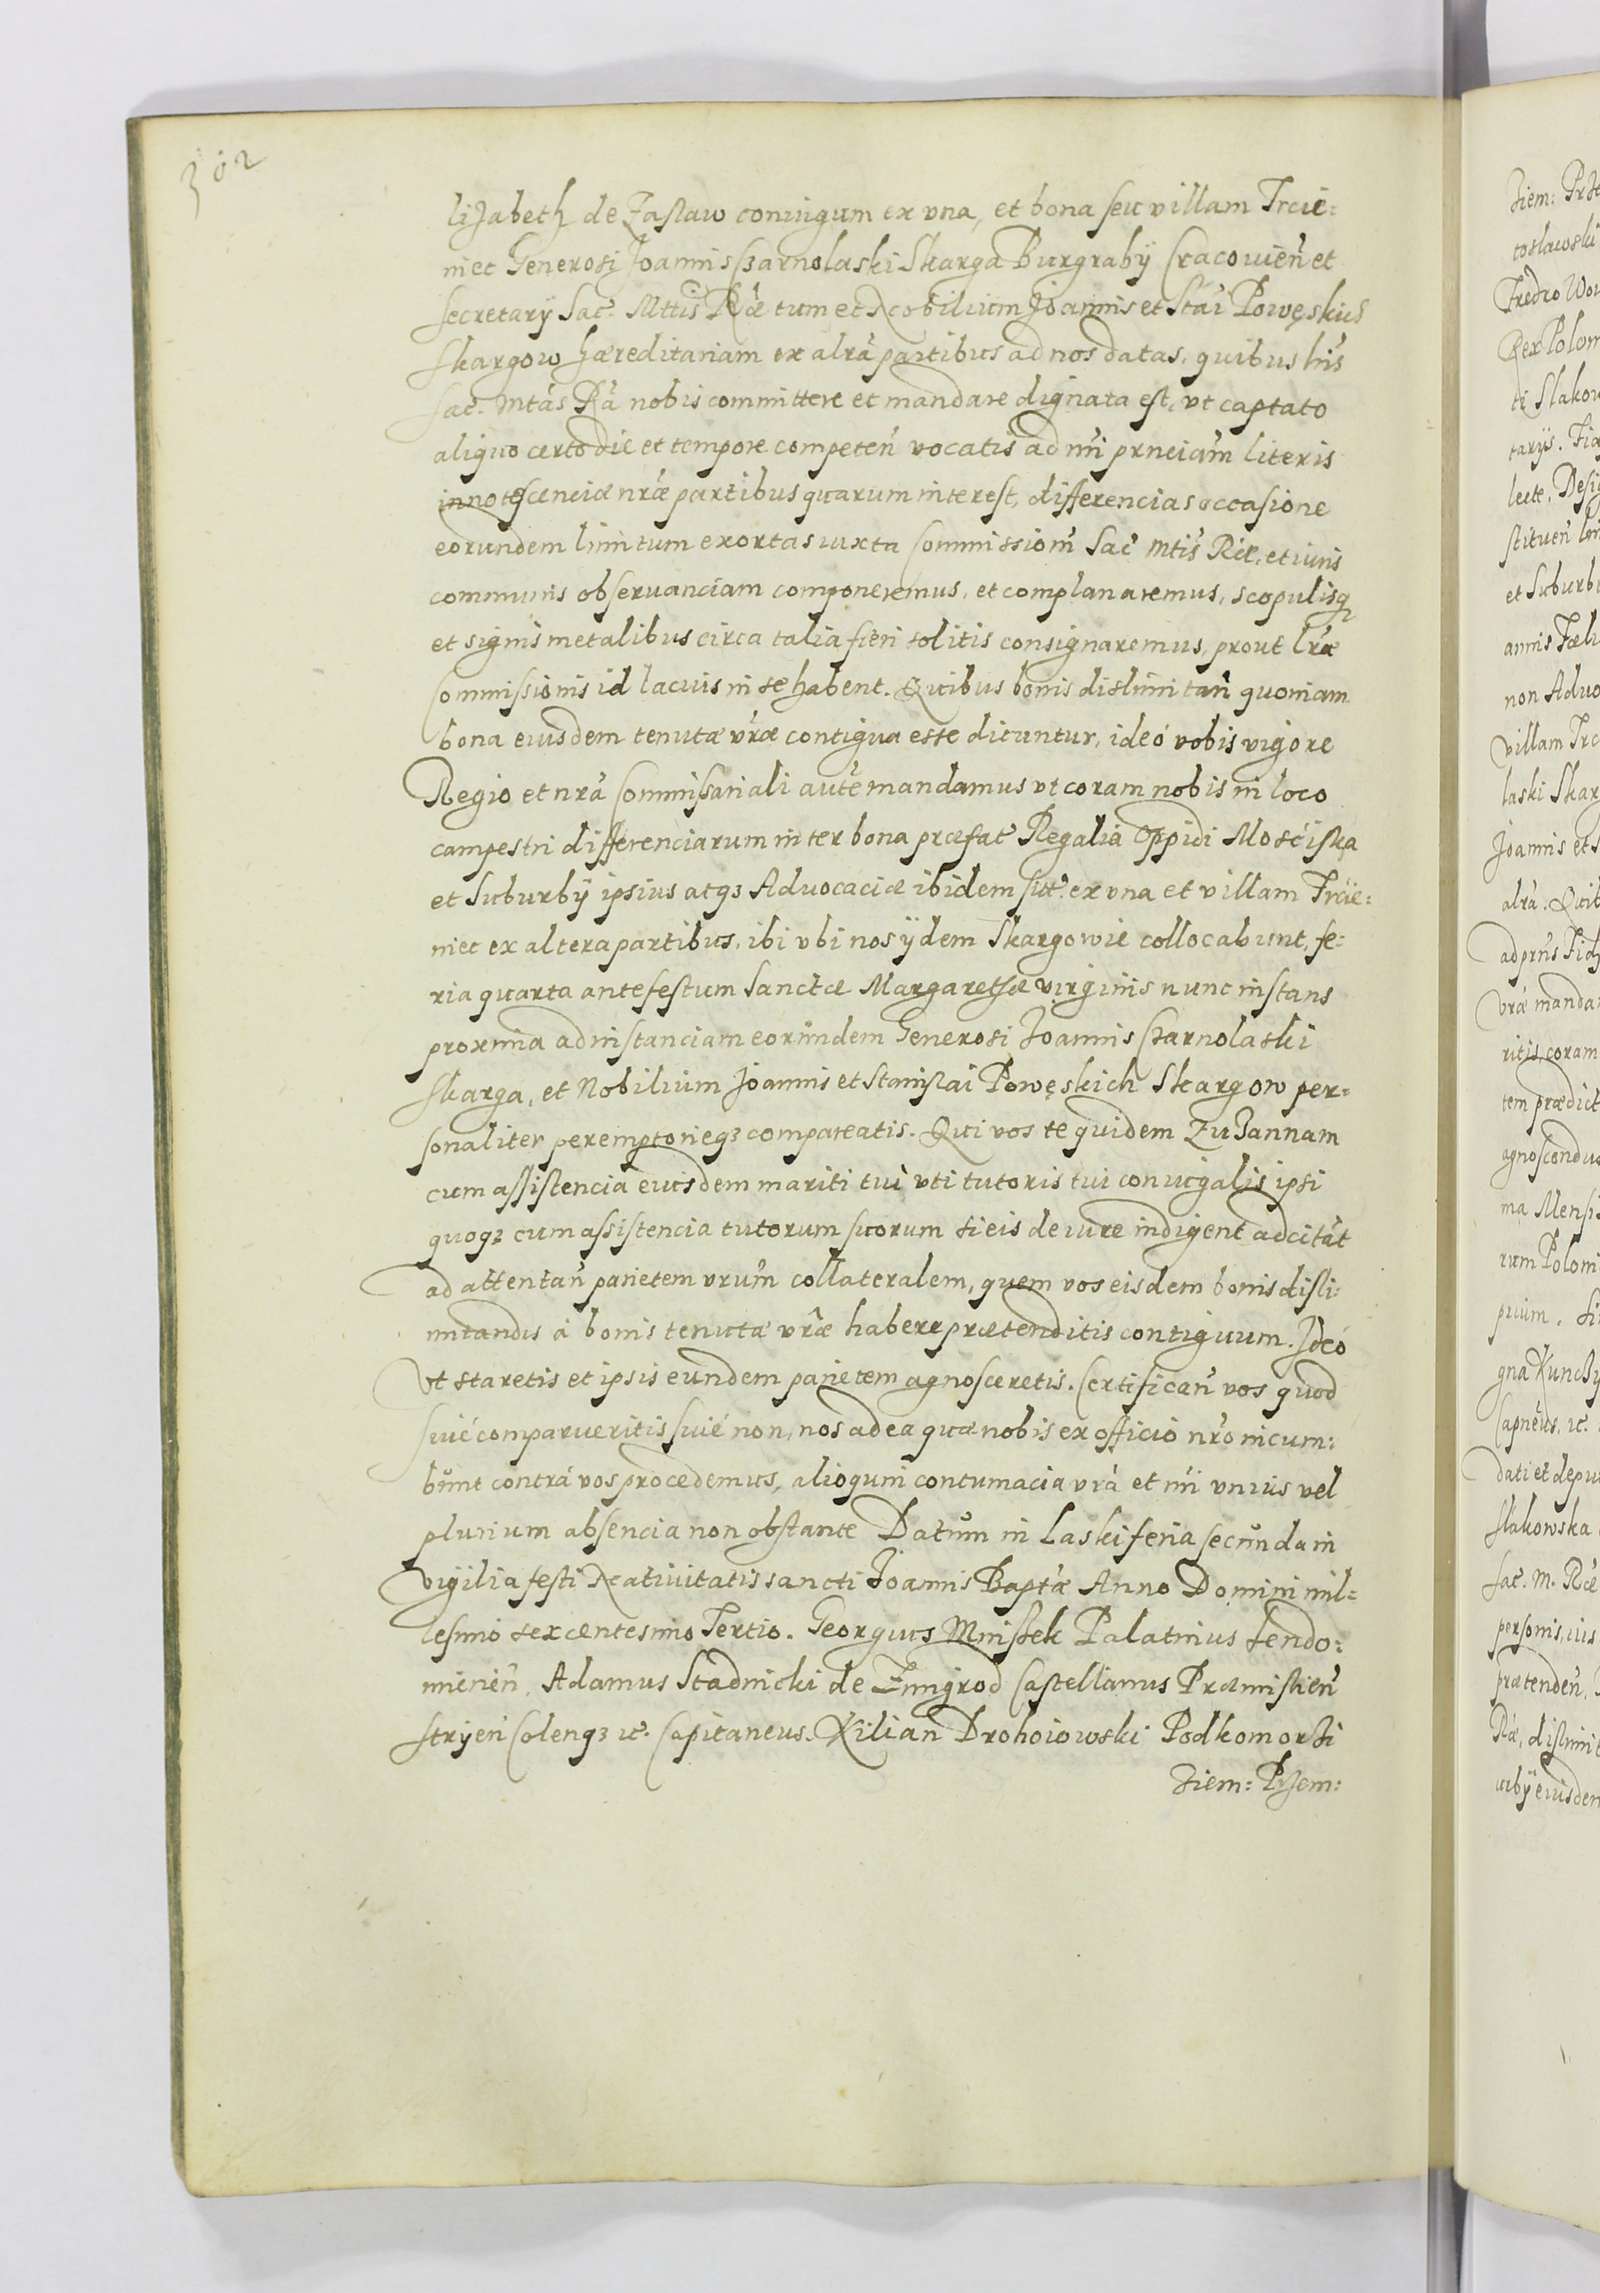 302
lizabeth de Zasław coniugum ex vna, et bona seu villam Trcie:
niec Generosi Joannis Czarnolaski Skarga Burgraby Cracouień et
secretarij Sac. Mttis Rae tum et Nobilium Joannis et Stai Powęskich
Skargow hæreditariam ex alra partibus ad nos datas, quibus lris
Sac. Mtas Ra nobis committere et mandare dignata est, vt captato
aliquo certo die et tempore competeń vocatis ad nri prnciam literis
innotescenciæ nræ partibus quarum interest, differencias occasione
eorundem limitum exortas iuxta Commissiom Sac Mtis Rae, et iuris
communis obseruanciam componeremus, et complanaremus, scopulisq
et signis metalibus circa talia fieri solitis consignaremus, prout lræ
Commissionis id lacius in se habent. Quibus bonis dislimitań quoniam
bona eiusdem tenutæ vræ contigua esse dicuntur, ideó vobis vigore
Regio et nra Commissariali aute mandamus vt coram nobis in loco
campestri differenciarum inter bona præfat Regalia Oppidi Mościska
et Suburbij ipsius atqz Aduocaciæ ibidem sit. ex vna et villam Trcie:
niec ex altera partibus, ibi vbi nos ijdem Skargowie collocabunt, fe:
ria quarta ante festum Sanctæ Margarethæ virginis nunc instans
proxima ad instanciam eorundem Generosi Joannis Czarnolaski
Skarga, et Nobilium Joannis et Stanislai Powęskich Skargow per-
sonaliter peremptorieqz compareatis. Qui vos te quidem Zuzannam
cum assistencia eiusdem mariti tui vti tutoris tui coniugalis ipsi
quoqz cum assistencia tutorum suorum si eis de iure indigent adcitat
ad attentań parietem vrum collateralem, quem vos eisdem bonis disli:
mitandis á bonis tenutæ vræ habere prætenditis contiguum. Jdeó
vt staretis et ipsis eundem parietem agnosceretis. Certificań vos quod
siué comparueritis siué non, nos ad ea quæ nobis ex officio nro incum:
bunt contrá vos procedemus, alioquin contumacia vrá et nri vnius vel
plurium absencia non obstante Datum in Laski feria secunda in
vigilia festi Natiuitatis sancti Joannis Baptæ Anno Domini mil-
lesimo sexcentesimo Tertio. Georgius Mnissek Palatinus Sendo:
mirień, Adamus Stadnicki de Zmigrod Castellanus Præmislień
Stryień Colenqz ic. Capitaneus. Kilian Drohoiowski Podkomorzi
Ziem: Przem: